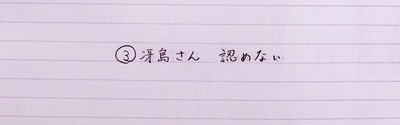 ③冴島さん 認めない